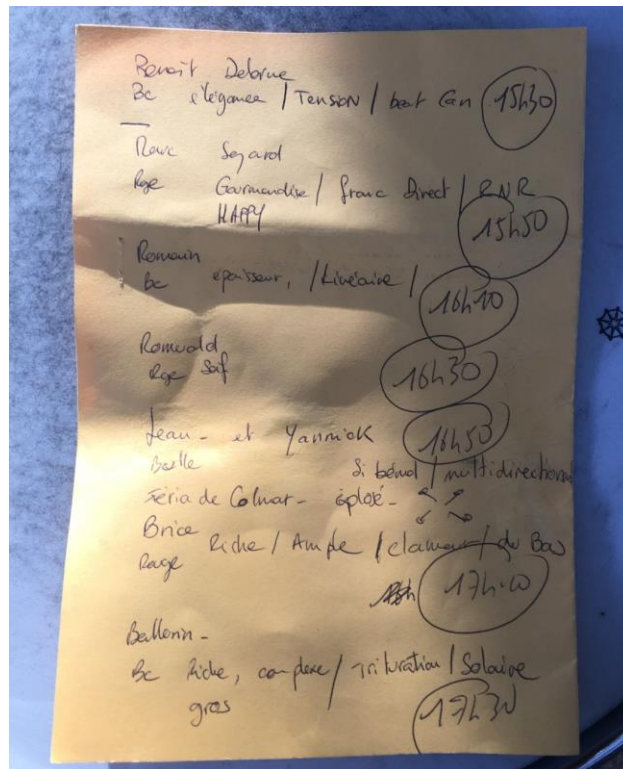 Benoit Delorme
Bc élégance / Tension / 15h30
Marc Seyard
Rge Gourmandise / franc Direct / RNR
HAPPY 15h50
Romain
Bc épaisseur, / Linéaire / 16h10
Romuald
Rge Soif 16h30
Jean - et Yannick 16h50
Si bémol / multidirectionn
Féria de Colmar -
Brice
Rouge Riche / Ample / clameur / du Bas
17h10
Ballorin -
Bc Riche, complexe / Trituration / Solaire
gros 17h30